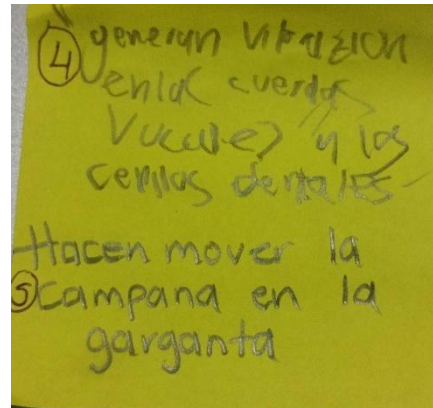 4 generan vibrazion
en las cuerdas
Vucales y los
cepilos dentales
Hacen mover la
5 campana en la
garganta